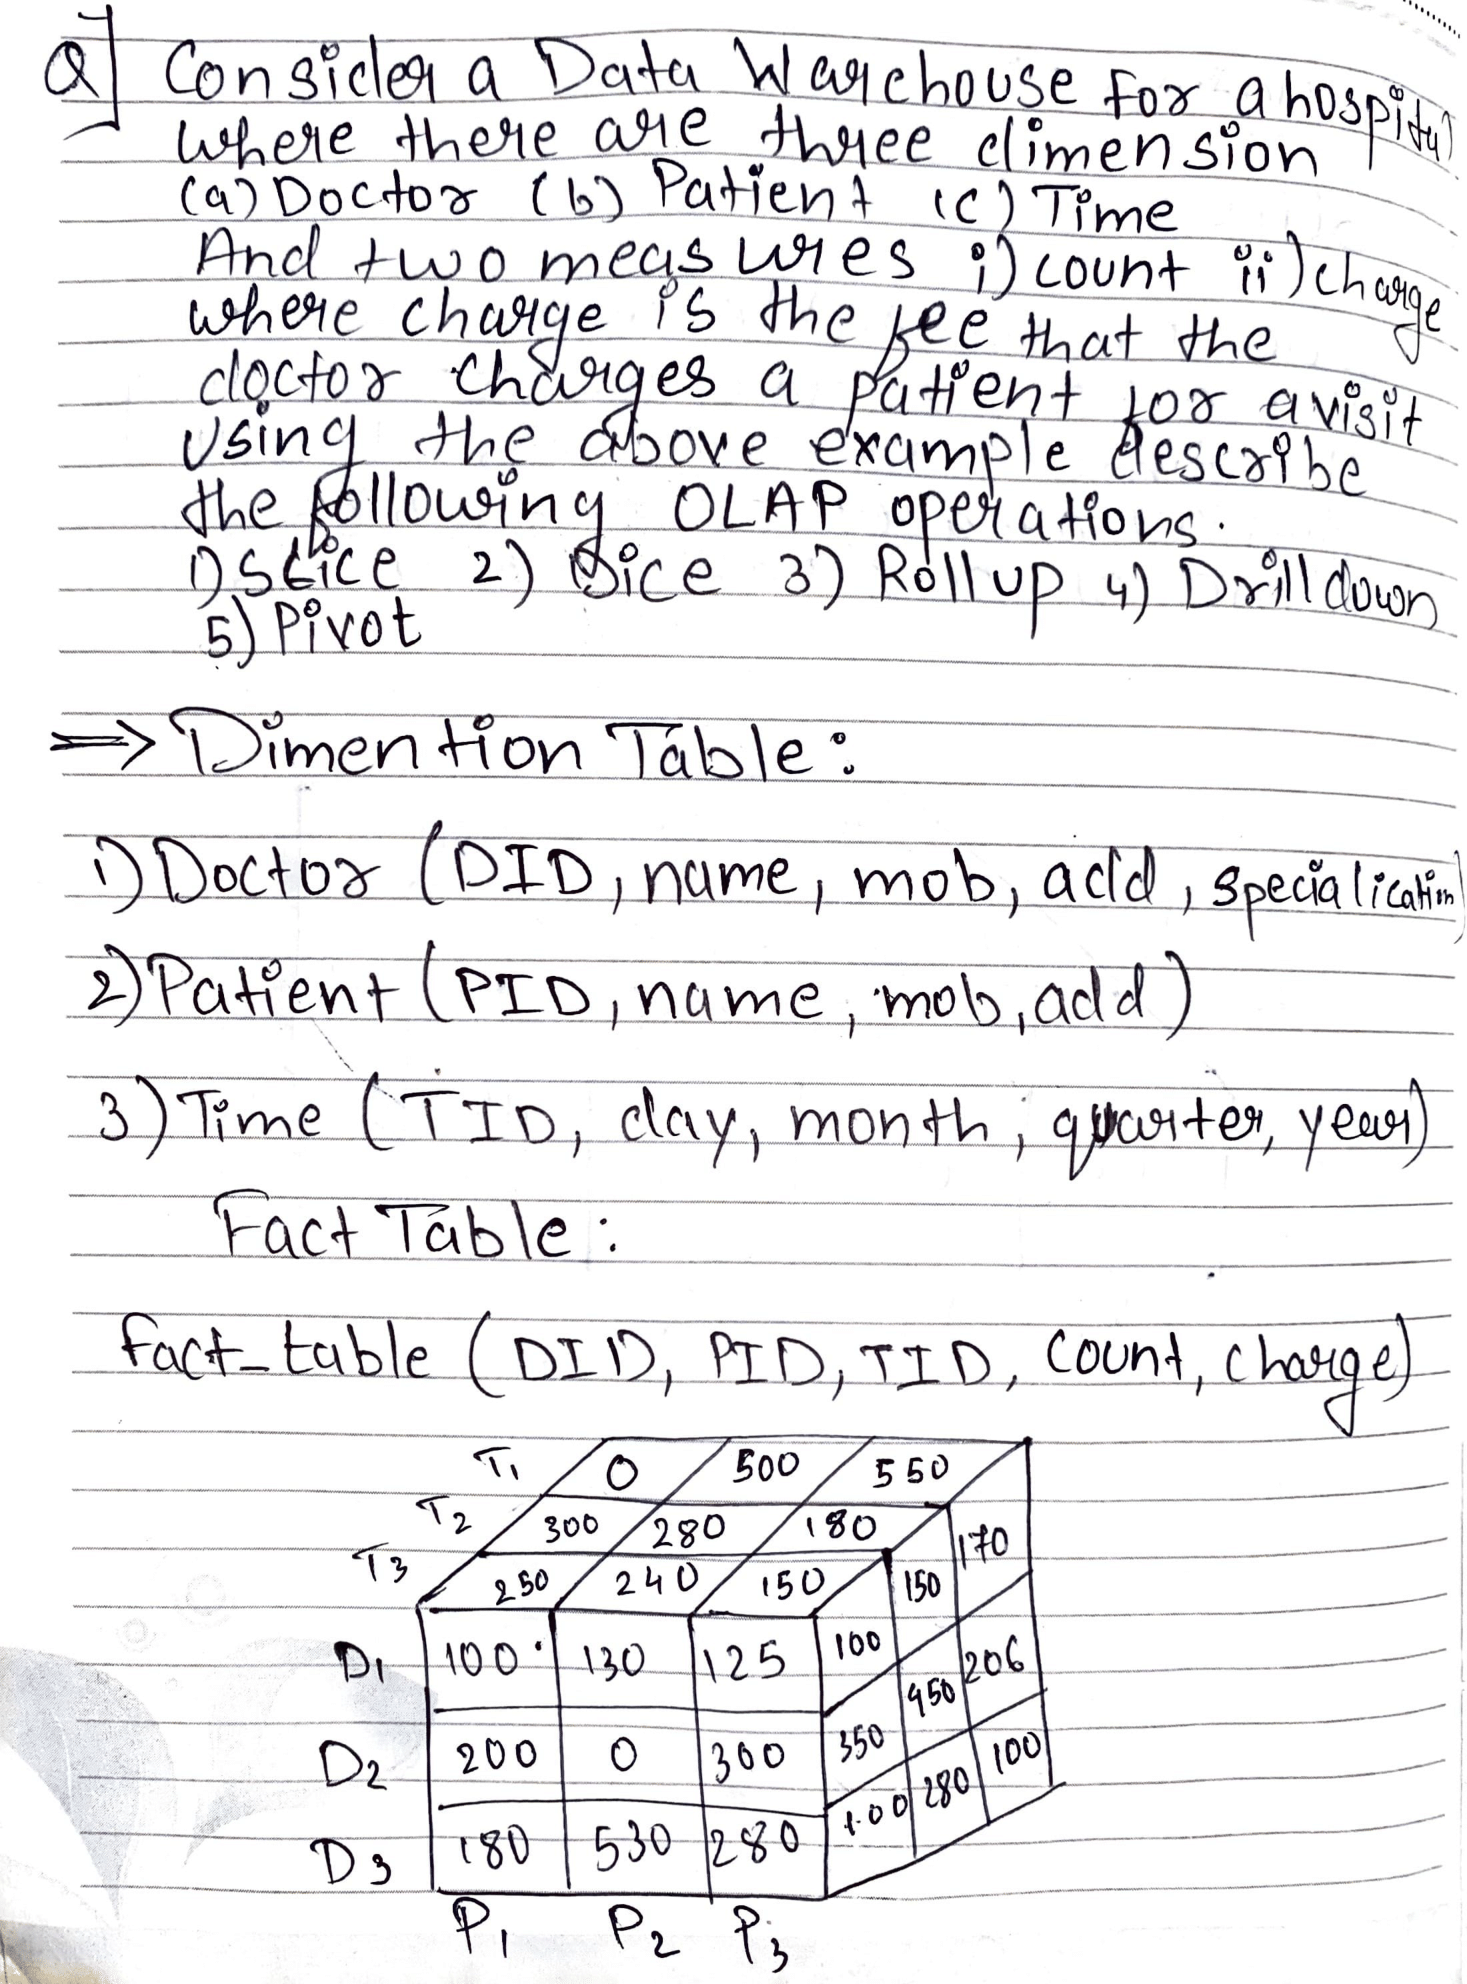 Q] Consider a Data Warehouse for a hospital
where there are three dimension
(a) Doctor (b) Patient (c) Time
And two measures i) count ii) charge
where charge is the fee that the
doctor charges a patient for a visit
Using the above example describe
the following OLAP operations.
1) Slice 2) Dice 3) Roll up 4) Drill down
5) Pivot
=> Dimention Table:
1) Doctor (DID, name, mob, add, specialication)
2) Patient (PID, name, mob, add)
3) Time (TID, day, month, quarter, year)
Fact Table:
fact_table (DID, PID, TID, count, charge)
T1 0 500 550
T2 300 280 180 170
T3 250 240 150 150
D1 100 130 125 100 206
450
D2 200 0 300 350 100
280
D3 180 530 280 100
P1 P2 P3